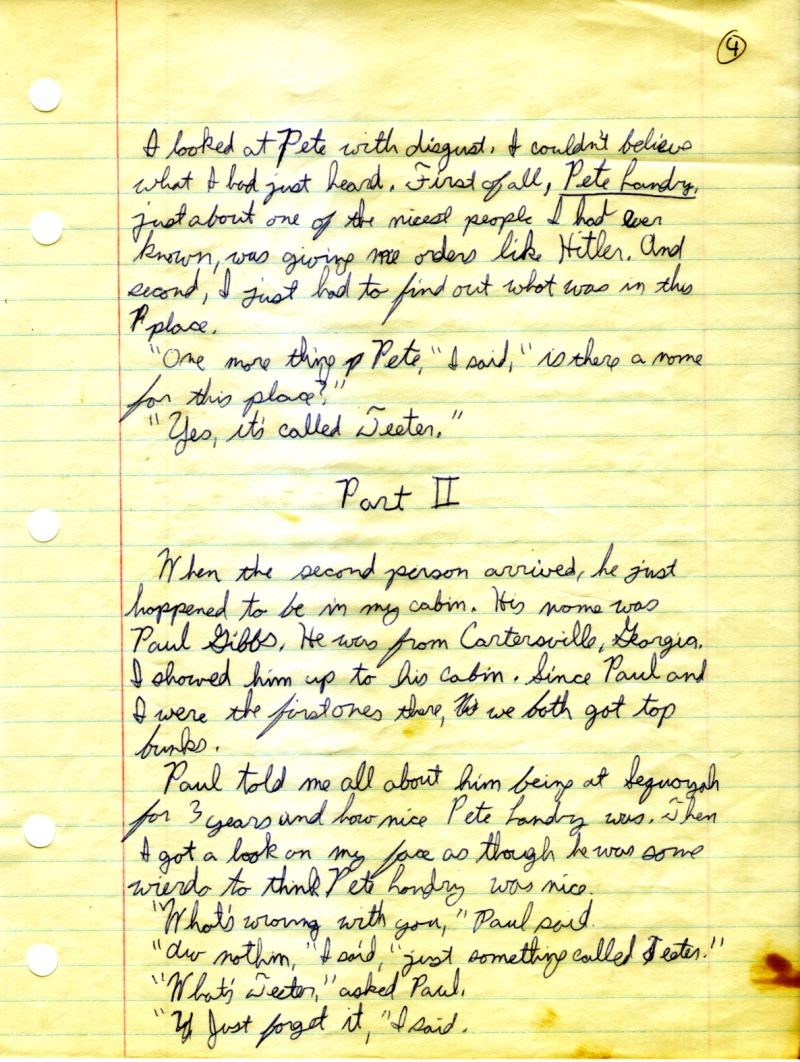 4
I looked at Pete with disgust. I couldn't believe
what I had just heard. First of all, Pete Landry,
just about one of the nicest people I had ever
known, was giving me orders like Hitler. And
second, I just had to find out what was in this
place.
"One more thing Pete," I said, "is there a name
for this place?"
"Yes, it's called Jeeter."
Part II
When the second person arrived, he just
happened to be in my cabin. His name was
Paul Gibbs. He was from Cartersville, Georgia.
I showed him up to his cabin. Since Paul and
I were the first ones there, we both got top
bunks.
Paul told me all about him being at Sequoyah
for 3 years and how nice Pete Landry was. Then
I got a look on my face as though he was some
wierdo to think Pete Landry was nice.
"What's wrong with you," Paul said.
"Aw nothin," I said, "just something called Jeeter."
"What's Jeeter," asked Paul.
"Just forget it," I said.